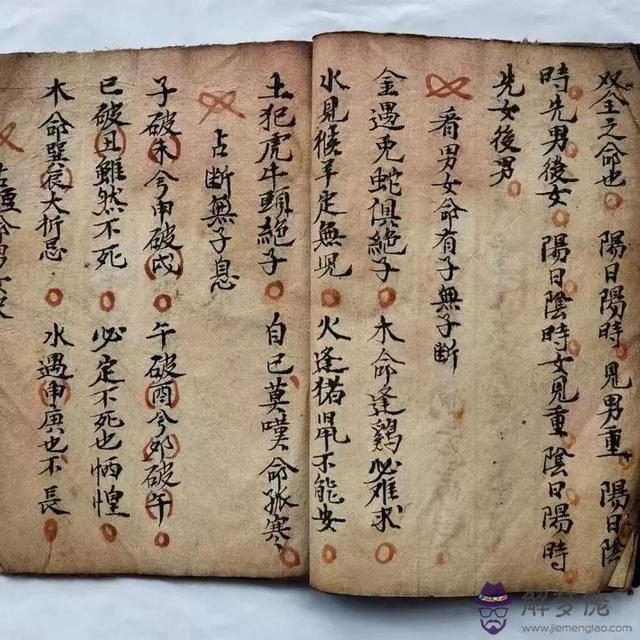 双全之命也 陽日陽時見男重 陽日陰
時先男後女 陽日陰時女見重 陰日陽時
先女後男
看男女命有子無子断
金遇兎蛇俱絶子 木命逢鷄必难求
水見猴羊定無児 火逢猪鼠不能安
土犯虎牛頭絶子 自己莫嘆命孤寒
占断無子息
子破未兮申破戌 午破酉兮卯破午
已破丑雖然不死 必定不死也恓惶
木命辰大折忌 水遇申庚也不長
解梦佬
www.jiemenglao.com